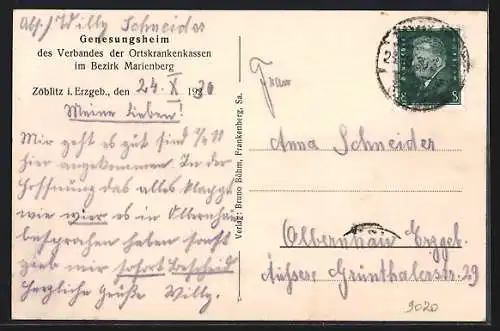 Abs./ Willy Schneider
Genesungsheim
des Verbandes der Ortskrankenkassen
im Bezirk Marienberg
Zöblitz i. Erzgeb., den 24. X 1930
Meine Lieben!
Mir geht es gut sind ½ 11
hier angekommen. In der
Hoffnung das alles klappt
wie wier es in Olbernhau
besprochen haben sonst
gieb mir sofort Bescheid
Herzliche Grüße Willy.
Verlag: Bruno Böhm, Frankenberg, Sa.
Frau
Anna Schneider
Olbernhau Erzgeb.
Äußere Grünthalerstr. 29
8
9020